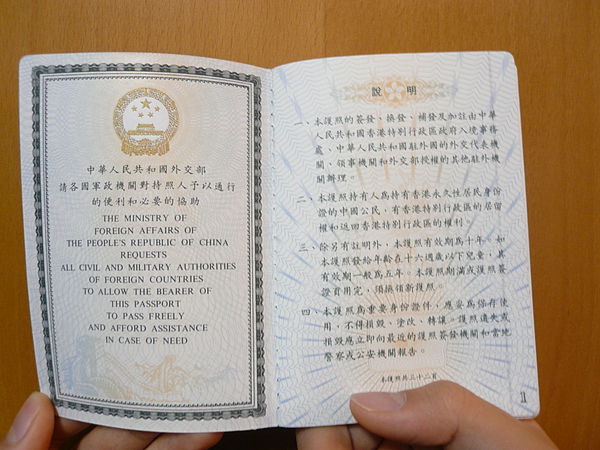 中華人民共和國外交部
請各國軍政機關對持照人予以通行
的便利和必要的協助
THE MINISTRY OF
FOREIGN AFFAIRS OF
THE PEOPLE'S REPUBLIC OF CHINA
REQUESTS
ALL CIVIL AND MILITARY AUTHORITIES
OF FOREIGN COUNTRIES
TO ALLOW THE BEARER OF
THIS PASSPORT
TO PASS FREELY
AND AFFORD ASSISTANCE
IN CASE OF NEED
說明
一、本護照的簽發、換發、補發及加註由中華
人民共和國香港特別行政區政府入境事務
處、中華人民共和國駐外國的外交代表機
關、領事機關和外交部授權的其他駐外機
關辦理。
二、本護照持有人為持有香港永久性居民身份
證的中國公民，有香港特別行政區的居留
權和返回香港特別行政區的權利。
三、除另有註明外，本護照有效期為十年。如
本護照發給年齡在十六週歲以下兒童，其
有效期一般為五年。本護照期滿或護照簽
證頁用完，須換領新護照。
四、本護照為重要身份證件，應妥為保存使
用，不得損毀、塗改、轉讓。護照遺失或
損毀應立即向最近的護照簽發機關和當地
警察或公安機關報告。
本護照共三十二頁
1